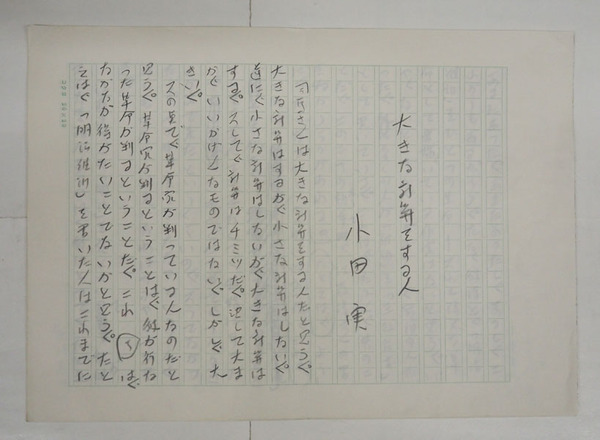 大きな計算をする人
小田 実
羽仁さんは大きな計算をする人だと思う。
大きな計算はするが、小さな計算はしない。
逆に、小さな計算はしないが、大きな計算は
する。そして、計算はチミツだ。決して大ま
かで、いいかげんなものではない。しかし、大
きい。
その点で、革命家が判っている人なのだと
思う。革命家が判るということは、彼が行な
った革命が判るということだ。これは、
なかなか得がたいことでないかと思う。たと
えば、「明治維新」を書いた人はこれまでに